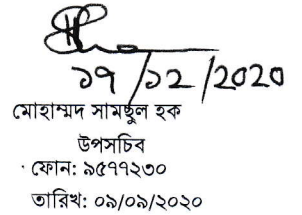 ১৭/১২/2020
মোহাম্মদ সামছুল হক
উপসচিব
ফোন: ৯৫৭৭২৩০
তারিখ: ০৯/০৯/২০২০